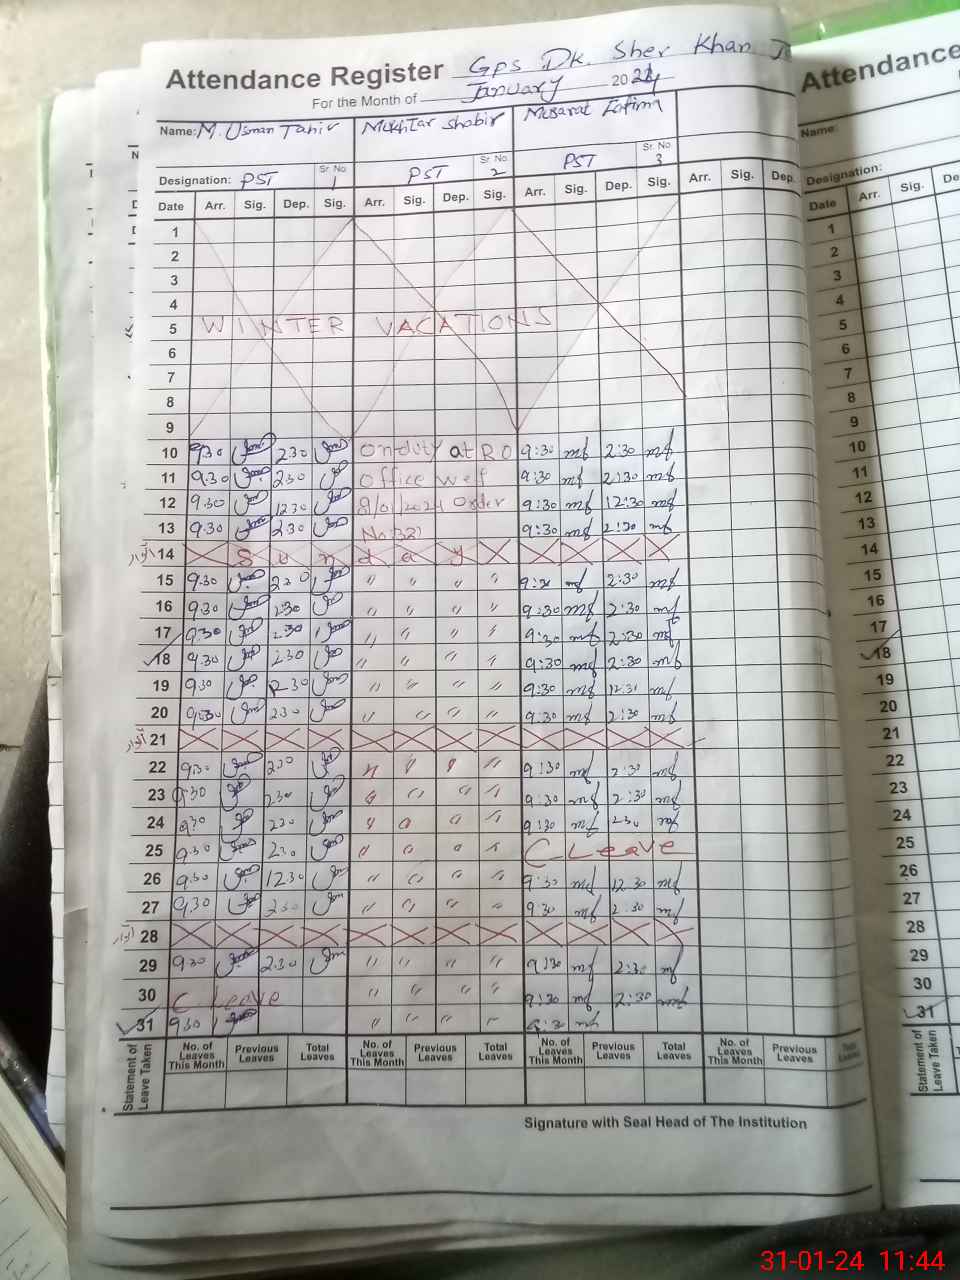 Attendance Register GPS DK. Sher Khan
For the Month of January 2024
Name: M. Usman Tahir Mukhtar Shabir Musarat Fatima
Sr. No 1 Sr. No 2 Sr. No. 3
Designation: PST PST PST
Date Arr. Sig. Dep. Sig. Arr. Sig. Dep. Sig. Arr. Sig. Dep. Sig. Arr. Sig. Dep.
1
2
3
4
5 WINTER VACATIONS
6
7
8
9
10 9.30 2.30 On duty at RO 9:30 2:30
11 9.30 2.30 Office wef 9:30 2:30
12 9.30 12.30 8/01/2024 Order 9:30 12:30
13 9.30 2.30 No: 321 9:30 2:30
14 Sunday
15 9.30 2.30 " " " " 9:30 2:30
16 9.30 2.30 " " " " 9:30 2:30
17 9.30 2.30 " " " " 9:30 2:30
18 9.30 2.30 " " " " 9:30 2:30
19 9.30 " " " " 9:30
20 9.30 2.30 " " " " 9:30 2:30
21
22 9.30 2.30 " " " " 9:30 2:30
23 9.30 2.30 " " " " 9:30 2:30
24 9.30 2.30 " " " " 9:30 2:30
25 9.30 2.30 " " " " C. Leave
26 9.30 12.30 " " " " 9:30 12:30
27 9.30 2.30 " " " " 9:30 2:30
28
29 9.30 2.30 " " " " 9:30 2:30
30 C. Leave " " " " 9:30 2:30
31 9.30 " " " "
Statement of Leave Taken
No. of Leaves This Month Previous Leaves Total Leaves No. of Leaves This Month Previous Leaves Total Leaves No. of Leaves This Month Previous Leaves Total Leaves No. of Leaves This Month Previous Leaves
Signature with Seal Head of The Institution
Attendance
Name:
Designation:
Date Arr. Sig.
1
2
3
4
5
6
7
8
9
10
11
12
13
14
15
16
17
18
19
20
21
22
23
24
25
26
27
28
29
30
31
Statement of Leave Taken
31-01-24 11:44